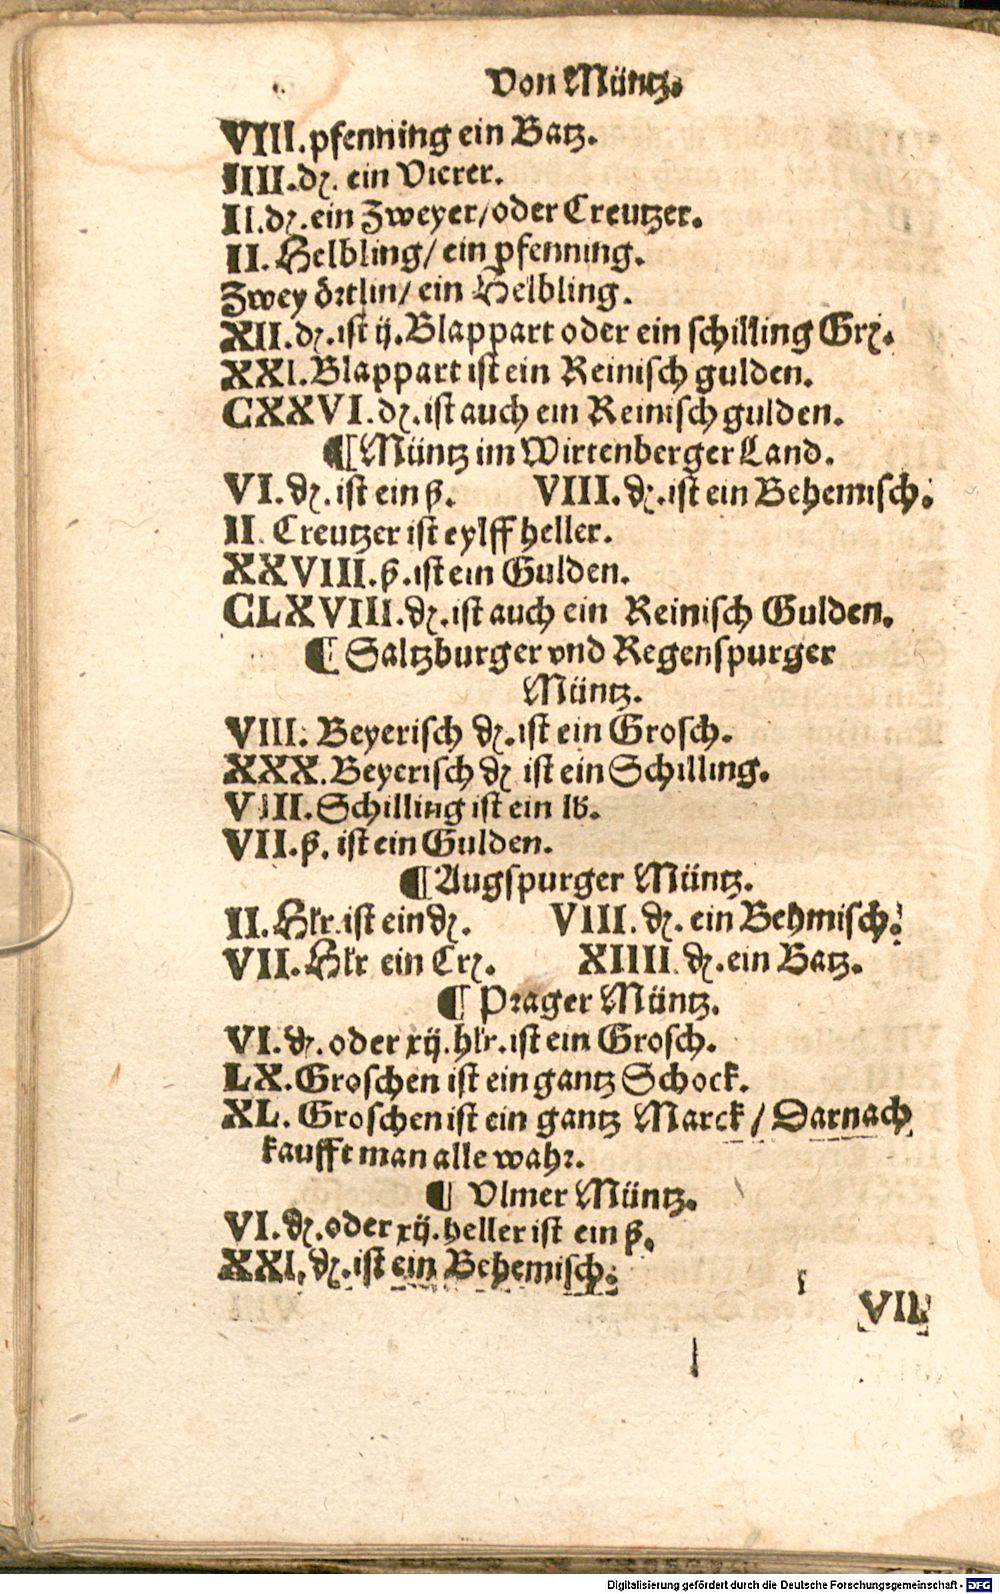 Von Müntz.
VIII. pfenning ein Batz.
IIII. ₰. ein Vierer.
II. ₰. ein Zweyer/ oder Creutzer.
II. Helbling/ ein pfenning.
Zwey örtlin/ ein Helbling.
XII. ₰. ist ij. Blappart oder ein schilling Grꝛ.
XXI. Blappart ist ein Reinisch gulden.
CXXVI. ₰. ist auch ein Reinisch gulden.
¶ Müntz im Wirtenberger Land.
VI. ₰. ist ein ß. VIII. ₰. ist ein Behemisch.
II. Creutzer ist eylff heller.
XXVIII. ß. ist ein Gulden.
CLXVIII. ₰. ist auch ein Reinisch Gulden.
¶ Saltzburger vnd Regenspurger
Müntz.
VIII. Beyerisch ₰. ist ein Grosch.
XXX. Beyerisch ₰ ist ein Schilling.
VIII. Schilling ist ein lb.
VII. ß. ist ein Gulden.
¶ Augspurger Müntz.
II. Hlr. ist ein ₰. VIII. ₰. ein Behmisch.
VII. Hlr ein Crꝛ. XIIII. ₰. ein Batz.
¶ Prager Müntz.
VI. ₰. oder xij. hlr. ist ein Grosch.
LX. Groschen ist ein gantz Schock.
XL. Groschen ist ein gantz Marck / Darnach
kaufft man alle wahr.
¶ Vlmer Müntz.
VI. ₰. oder xij. heller ist ein ß.
XXI. ₰. ist ein Behemisch.
VII.
Digitalisierung gefördert durch die Deutsche Forschungsgemeinschaft - DFG